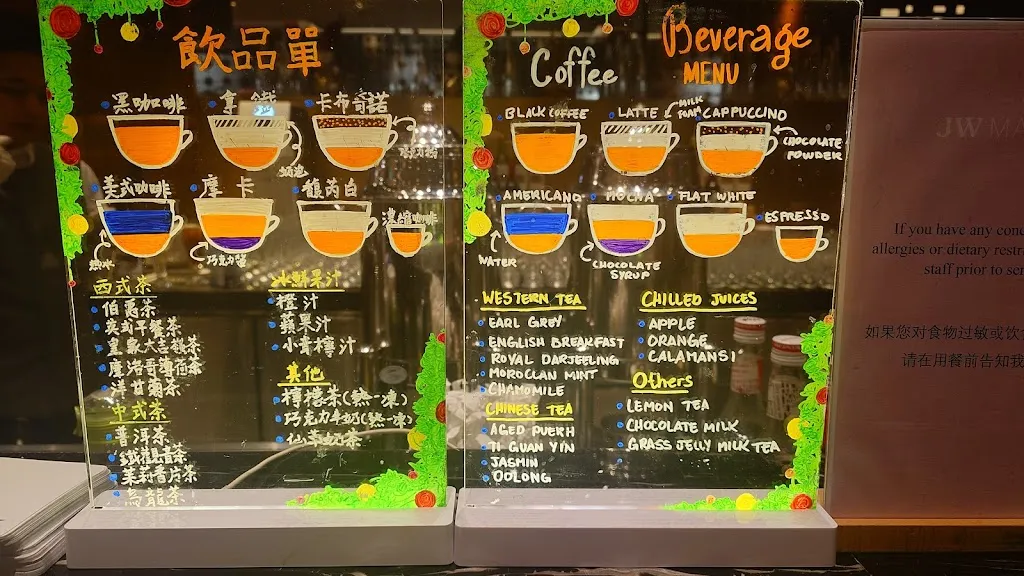 飲品單
黑咖啡
拿鐵
卡布奇諾
奶泡
美式咖啡
摩卡
馥芮白
濃縮咖啡
熱水
巧克力醬
西式茶
伯爵茶
英式早餐茶
皇家大吉嶺茶
摩洛哥薄荷茶
洋甘菊茶
中式茶
普洱茶
鐵觀音茶
茉莉香片茶
烏龍茶
冰鮮果汁
橙汁
蘋果汁
小青檸汁
其他
檸檬茶(熱一凍)
巧克力牛奶(熱一凍)
仙草奶茶
Beverage
MENU
Coffee
BLACK COFFEE
LATTE
MILK
FOAM
CAPPUCCINO
CHOCOLATE
POWDER
AMERICANO
MOCHA
FLAT WHITE
ESPRESSO
WATER
CHOCOLATE
SYRUP
WESTERN TEA
EARL GREY
ENGLISH BREAKFAST
ROYAL DARJEELING
MOROCCAN MINT
CHAMOMILE
CHINESE TEA
AGED PUERH
TI GUAN YIN
JASMIN
OOLONG
CHILLED JUICES
APPLE
ORANGE
CALAMANSI
Others
LEMON TEA
CHOCOLATE MILK
GRASS JELLY MILK TEA
JW MA
If you have any
allergies or dietary
staff prior to
如果您对食物过敏或饮
请在用餐前告知我